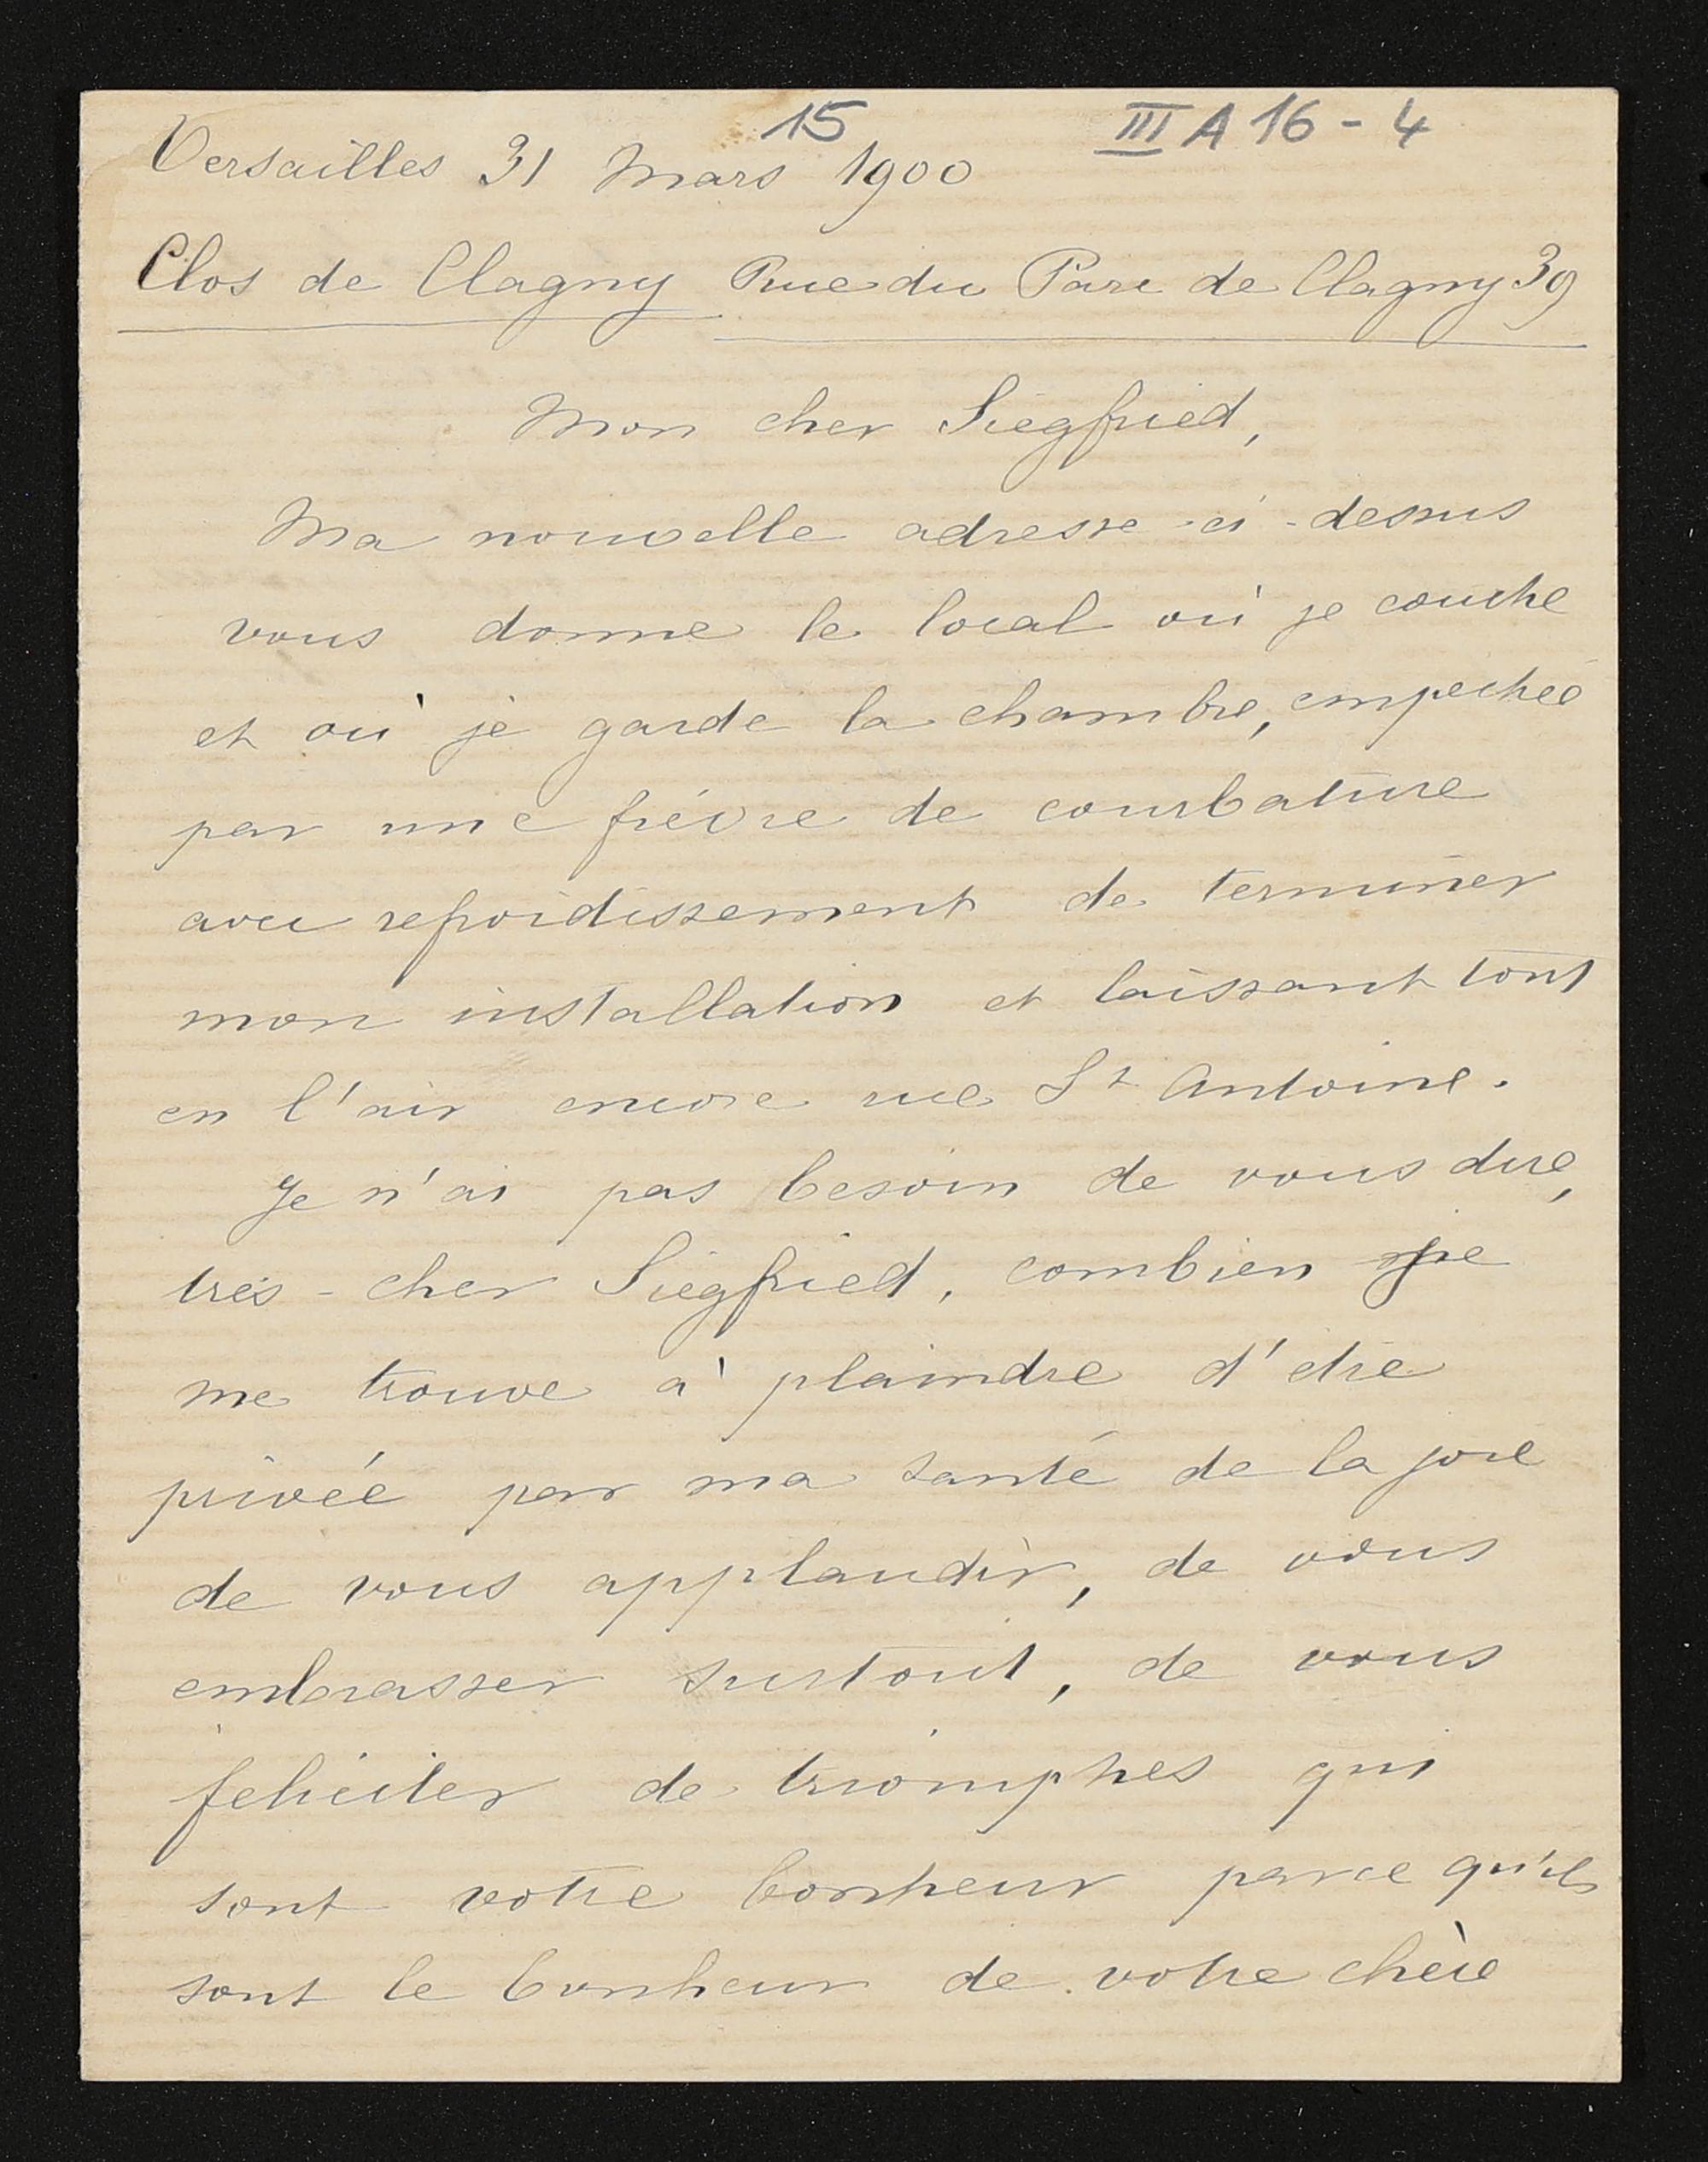 15 III A 16 - 4
Versailles 31 Mars 1900
Clos de Clagny Rue du Parc de Clagny 39
Mon cher Siegfried,
Ma nouvelle adresse ci-dessus
vous donne le local où je couche
et où je garde la chambre, empechée
par une fiévre de courbature
avec refroidissement de terminer
mon installation et laissant tout
en l'air encore rue St Antoine.
Je n'ai pas besoin de vous dire,
trés-cher Siegfried, combien je
me trouve à plaindre d'etre
privée par ma santé de la joie
de vous applaudir, de vous
embrasser surtout, de vous
feliciter de triomphes qui
sont votre bonheur parce qu'ils
sont le bonheur de votre chère